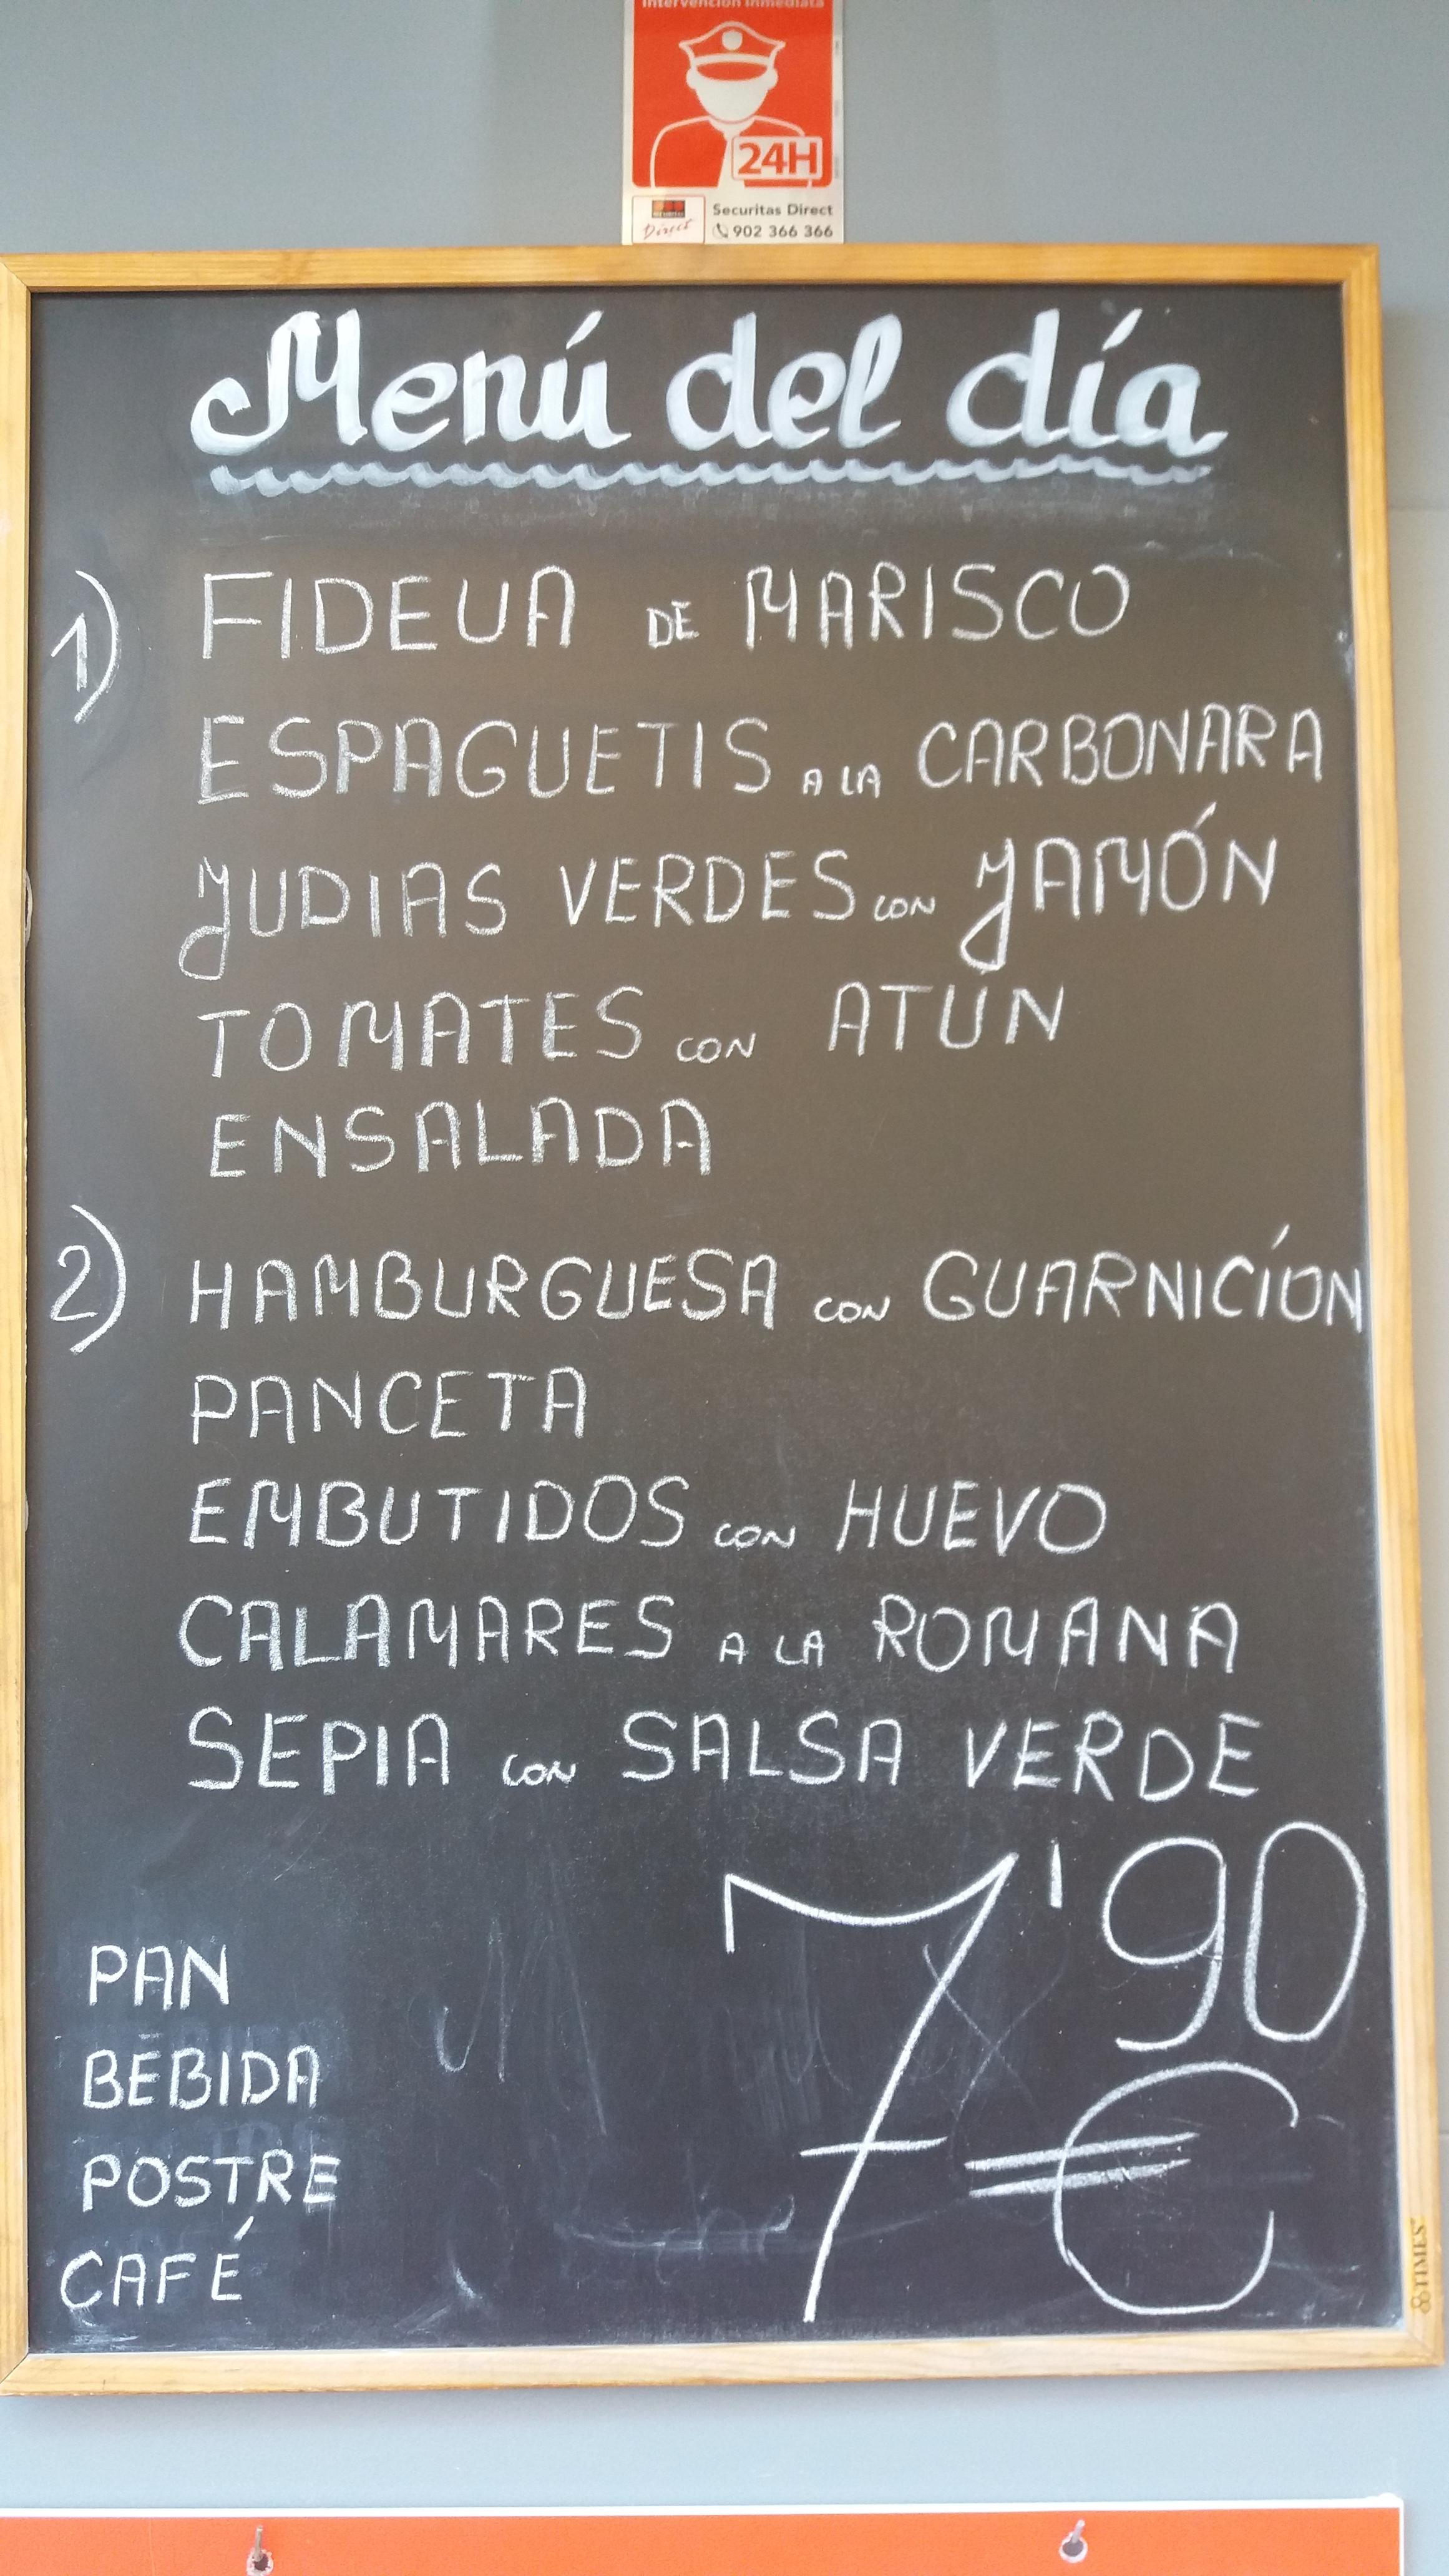 Intervención inmediata
24H
Direct
Securitas Direct
902 366 366
Menú del día
1) FIDEUA DE MARISCO
ESPAGUETIS A LA CARBONARA
JUDIAS VERDES CON JAMÓN
TOMATES CON ATÚN
ENSALADA
2) HAMBURGUESA CON GUARNICÍON
PANCETA
EMBUTIDOS CON HUEVO
CALAMARES A LA ROMANA
SEPIA CON SALSA VERDE
7'90
€
PAN
BEBIDA
POSTRE
CAFÉ
TIMES